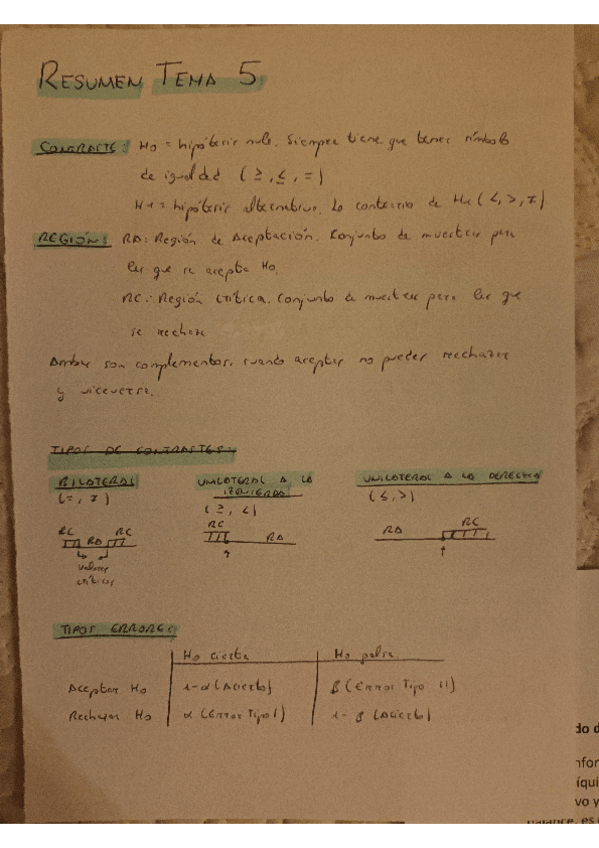 RESUMEN TEMA 5
CONTRASTE: H0 = hipótesis nula. Siempre tiene que tener símbolo
de igualdad (≥, ≤, =)
H1 = hipótesis alternativa. Lo contrario de H0 (<, >, ≠)
REGIÓN: RA: Región de Aceptación. Conjunto de muestras para
las que se acepta H0.
RC: Región crítica. Conjunto de muestras para las que
se rechaza
Ambas son complementos. cuando aceptas no puedes rechazar
y viceversa.
TIPOS DE CONTRASTES:
BILATERAL UNILATERAL A LA IZQUIERDA UNILATERAL A LA DERECHA
(=, ≠) (≥, <) (≤, >)
RC RA RC RC RA RA RC
Valores
críticos
TIPOS ERRORES
H0 cierta H0 falsa
Aceptar H0 1-α (Acierto) β (Error Tipo II)
Rechazar H0 α (Error Tipo I) 1-β (Acierto)
do d
nfor
íqui
vo y
balance, es